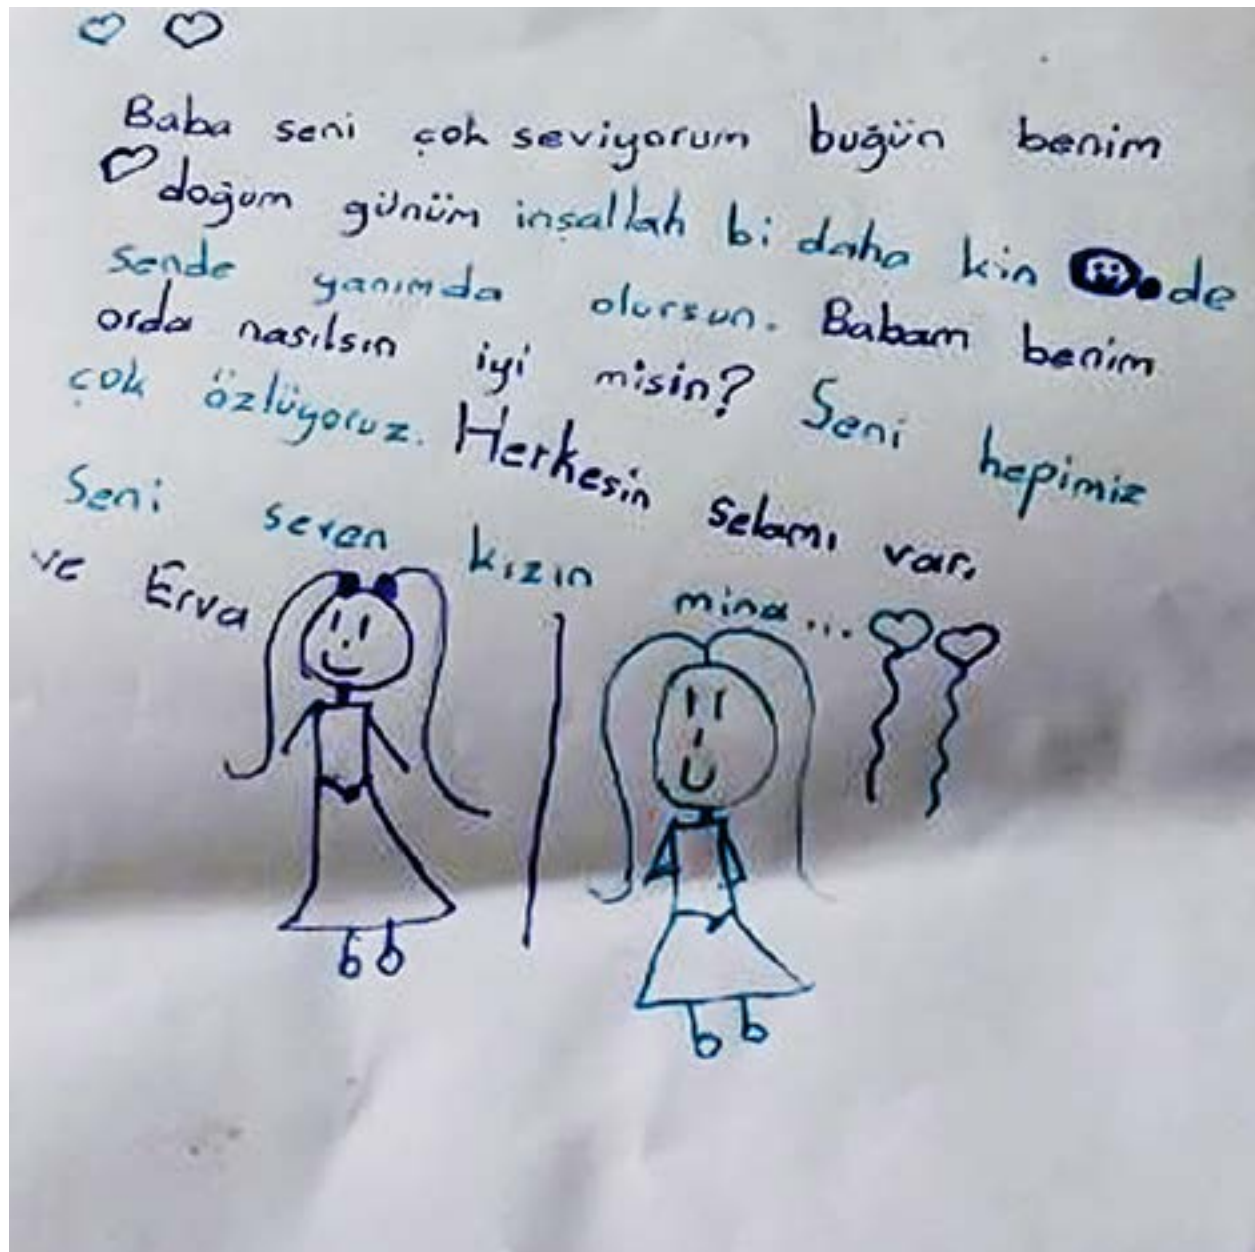 Baba seni çok seviyorum buğün benim
doğum günüm inşallah bi daha kin de
sende yanımda olursun. Babam benim
orda nasılsın iyi misin? Seni hepimiz
çok özlüyoruz. Herkesin selamı var.
Seni seven kızın mina...
ve Erva